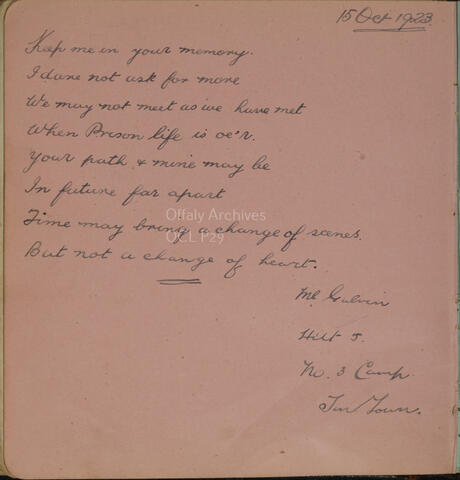 15 Oct 1923.
Keep me in your memory.
I dare not ask for more
We may not meet as we have met
When Prison life is oe'r.
Your path & mine may be
In future far apart
Time may bring a change of scenes.
Offaly Archives
OCL P29
But not a change of heart.
Ml. Galvin
Hut 5.
No. 3 Camp.
Tin Town.